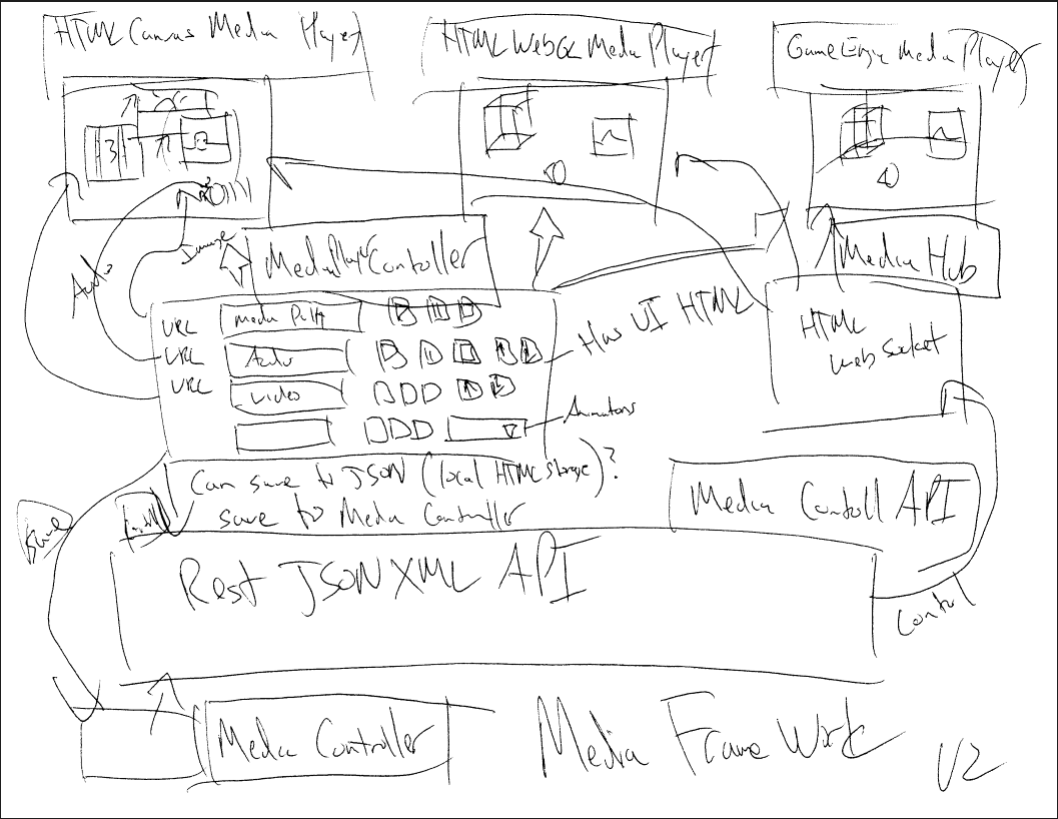 HTML Canvas Media Player
HTML WebGL Media Player
Game Engine Media Player
3
Audio
Image
Media Player Controller
Media Hub
URL Media Path
URL Audio
URL Video
Has UI HTML
HTML
Web Socket
Animations
Can save to JSON (local HTML storage)?
save to Media Controller
Media Controll API
Save
Rest JSON XML API
Control
Media Controller
Media Frame Work
V2